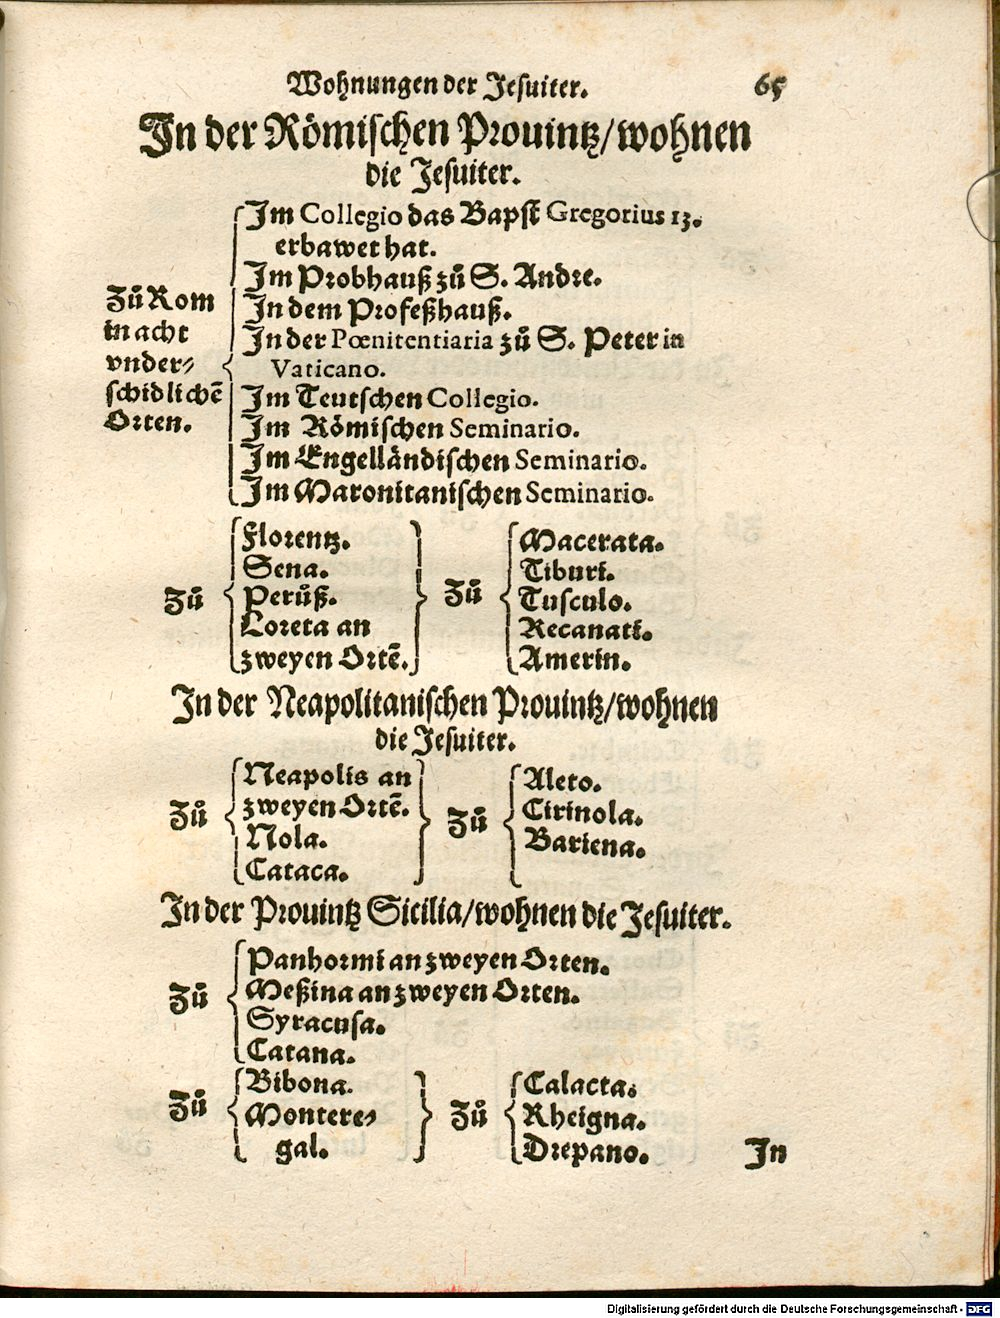 Wohnungen der Jesuiter. 65
In der Römischen Prouintz/wohnen
die Jesuiter.
Zů Rom
in acht
vnder⸗
schidlichẽ
Orten.
Im Collegio das Bapst Gregorius 13.
erbawet hat.
Im Probhauß zů S. Andre.
In dem Profeßhauß.
In der Pœnitentiaria zů S. Peter in
Vaticano.
Im Teutschen Collegio.
Im Römischen Seminario.
Im Engelländischen Seminario.
Im Maronitanischen Seminario.
Zů
Florentz.
Sena.
Perůß.
Loreta an
zweyen Ortẽ.
Zů
Macerata.
Tiburi.
Tusculo.
Recanati.
Amerin.
In der Neapolitanischen Prouintz/wohnen
die Jesuiter.
Zů
Neapolis an
zweyen Ortẽ.
Nola.
Cataca.
Zů
Aleto.
Cirinola.
Bariena.
In der Prouintz Sicilia/wohnen die Jesuiter.
Zů
Panhormi an zweyen Orten.
Meßina an zweyen Orten.
Syracusa.
Catana.
Zů
Bibona.
Montere⸗
gal.
Zů
Calacta.
Rheigna.
Drepano.
In
Digitalisierung gefördert durch die Deutsche Forschungsgemeinschaft - DFG